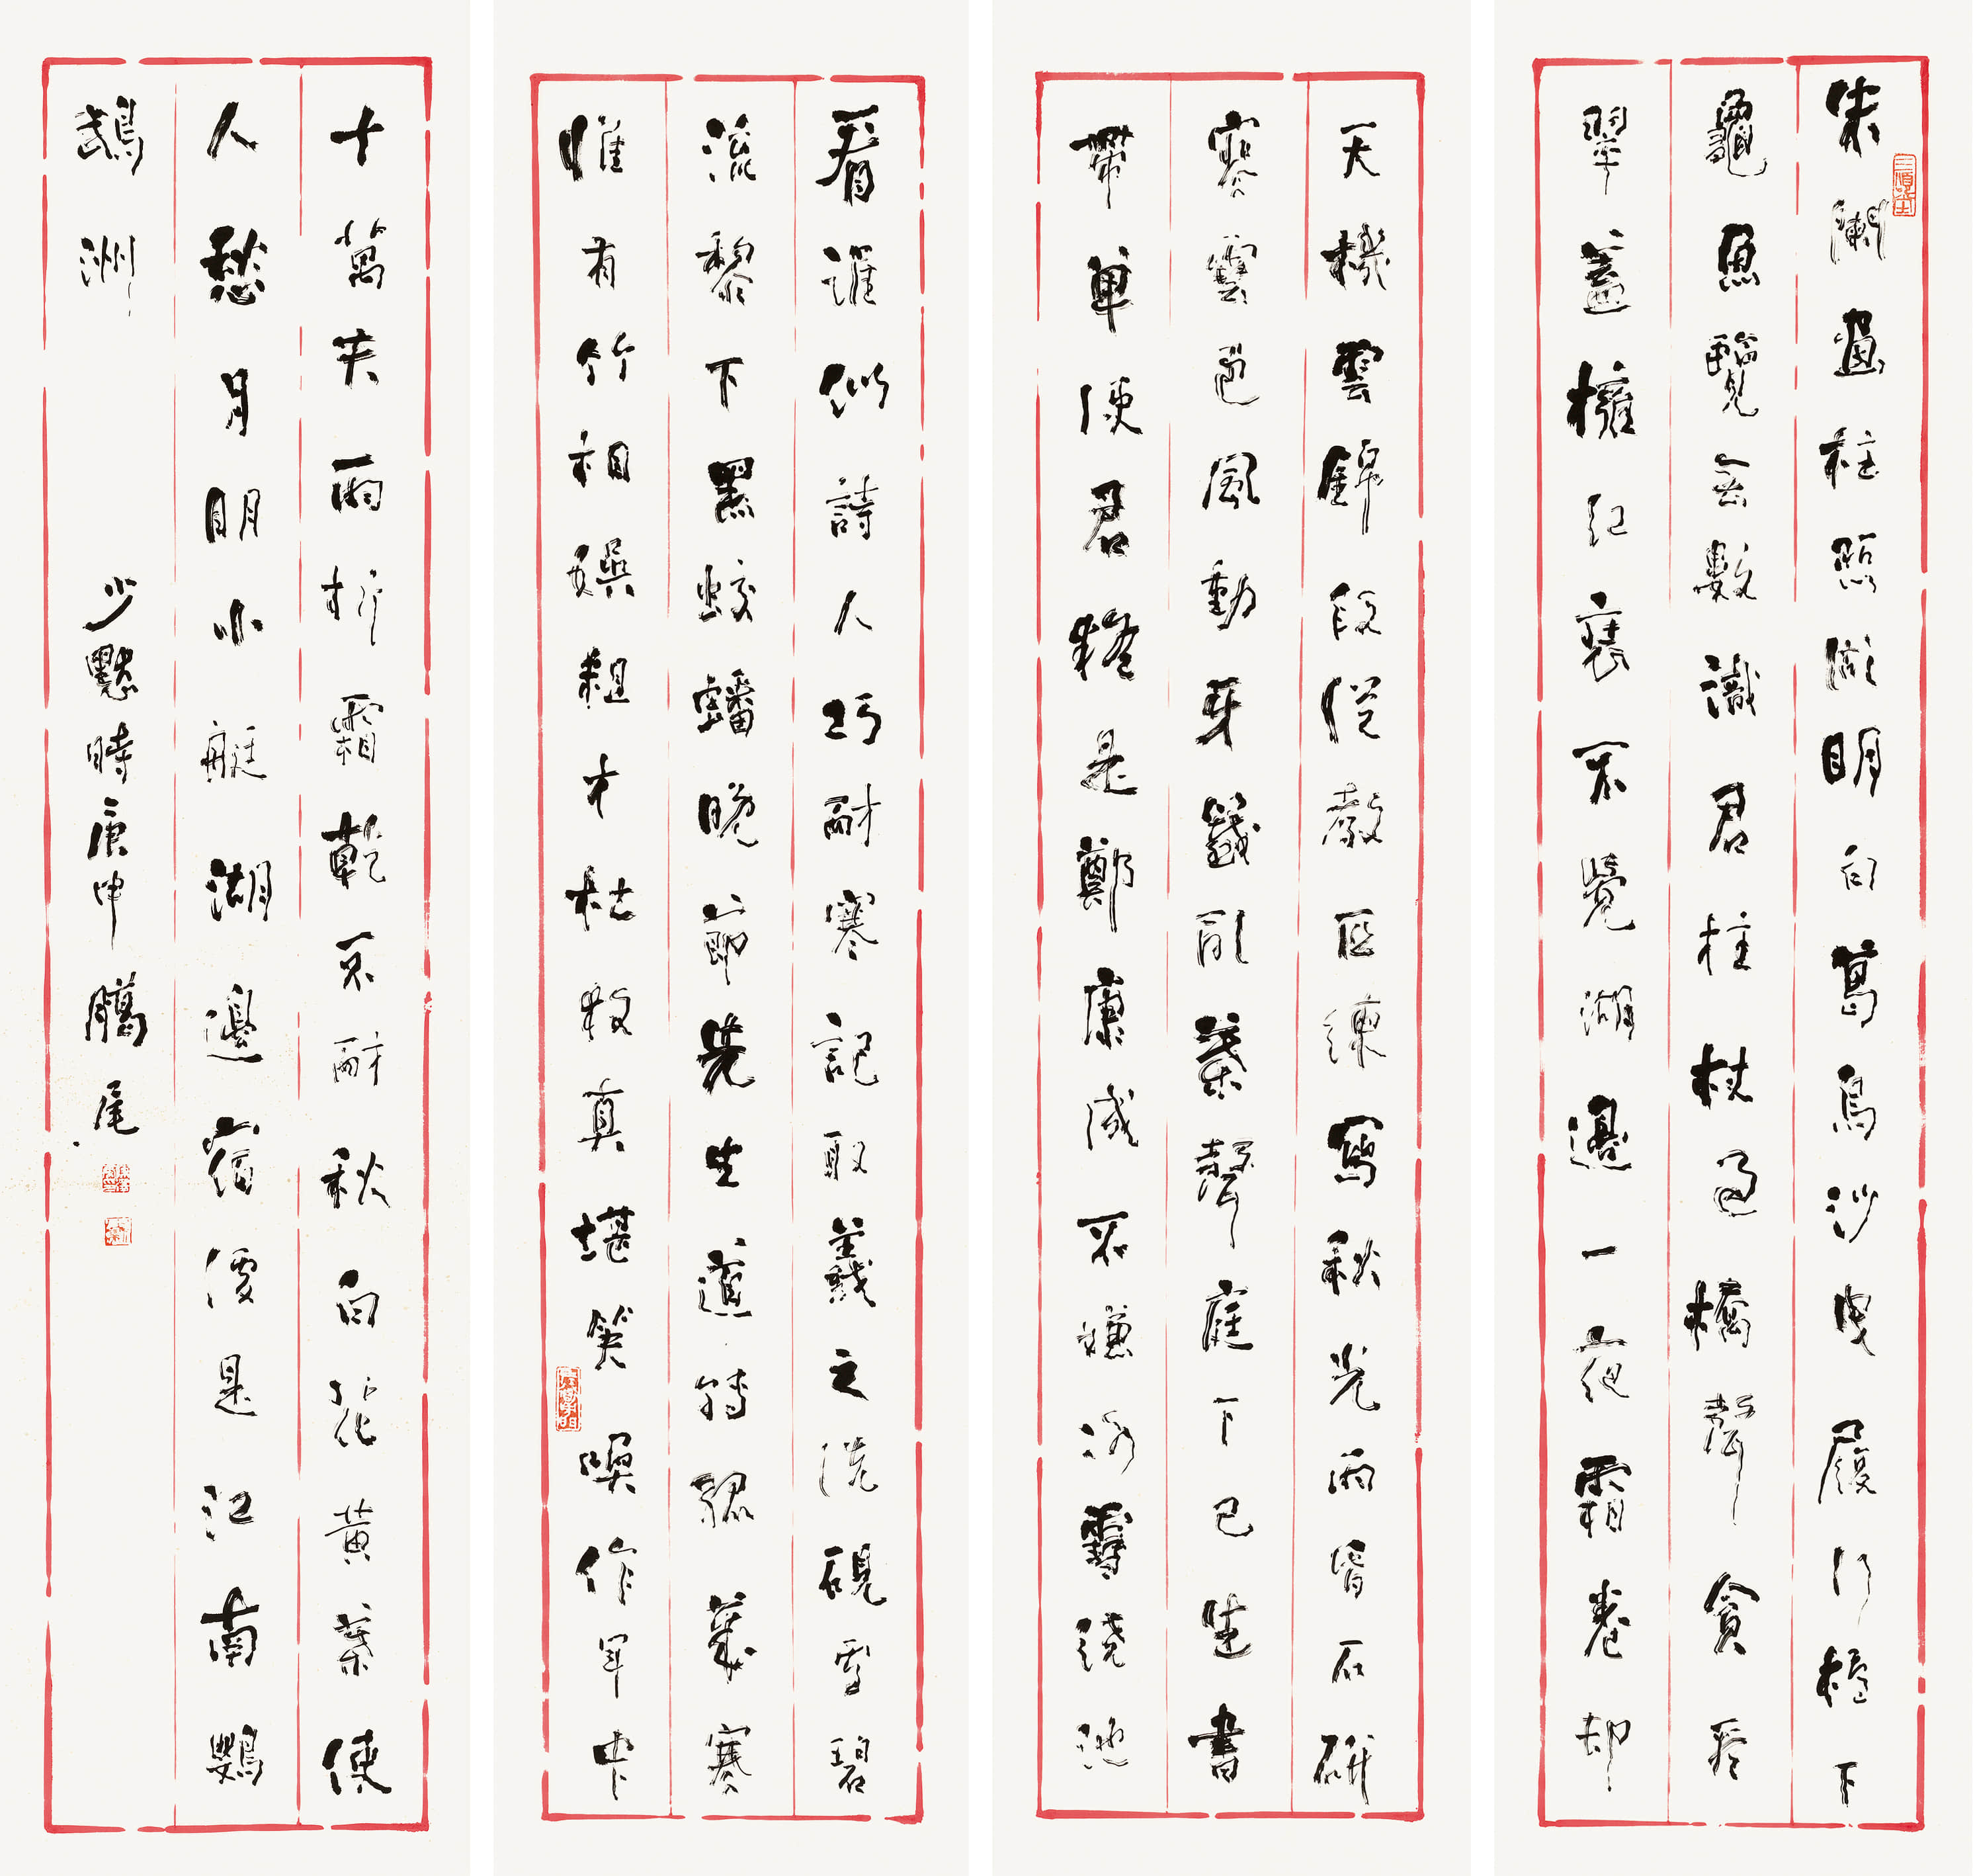 朱闌畫柱照湖明白葛烏沙曳履行橋下
龜魚覽無數識君柱杖過橋聲貪看
翠蓋擁紅裝不覺湖邊一夜霜卷却
天機雲錦段從教匹練寫秋光雨昏石研
寒雲色風動牙籤亂葉聲庭下已生書
帶草使君疑是鄭康成不嫌冰雪繞池
看誰似詩人巧耐寒記取羲之洗硯處碧
流黎下黑蛟蟠晚節先生道轉孤歲寒
惟有竹相娛粗才杜牧真堪笑喚作軍中
十萬夫雨折霜乾不耐秋白花黃葉使
人愁月明小艇湖邊宿便是江南鸚
鵡洲
少黙時庚申臈尾